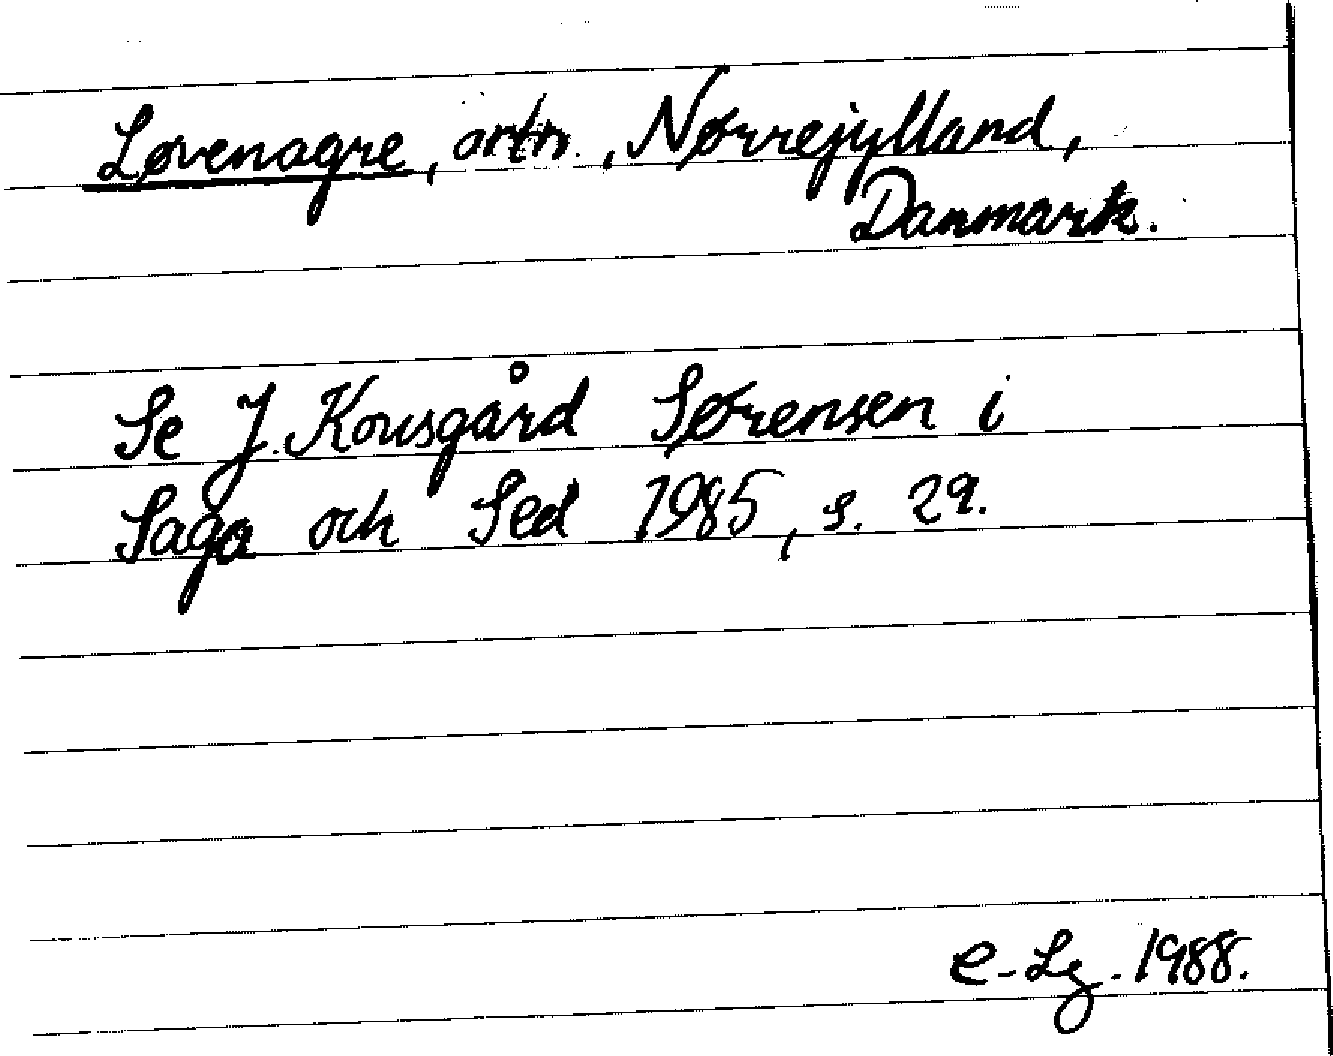 Løvenagre, ortn., Nørrejylland,
Danmark.
Se J. Kousgård Sørensen i
Saga och Sed 1985, s. 29.
e-Lg. 1988.